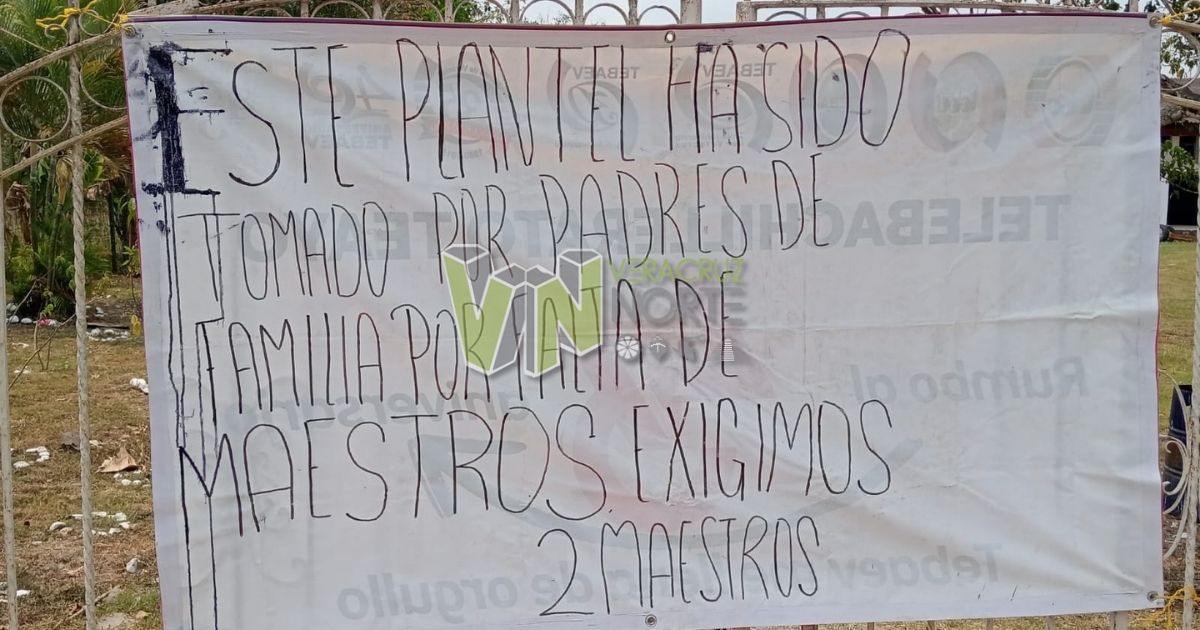 ESTE PLANTEL HA SIDO
TOMADO POR PADRES DE
FAMILIA POR FALTA DE
MAESTROS, EXIGIMOS
2 MAESTROS
VN VERACRUZ
NORTE
TEBAEV
TEBAEV
TEBAEV
TELEBACHILLERATO
Rumbo al
aniversario
Tebaev
de orgullo